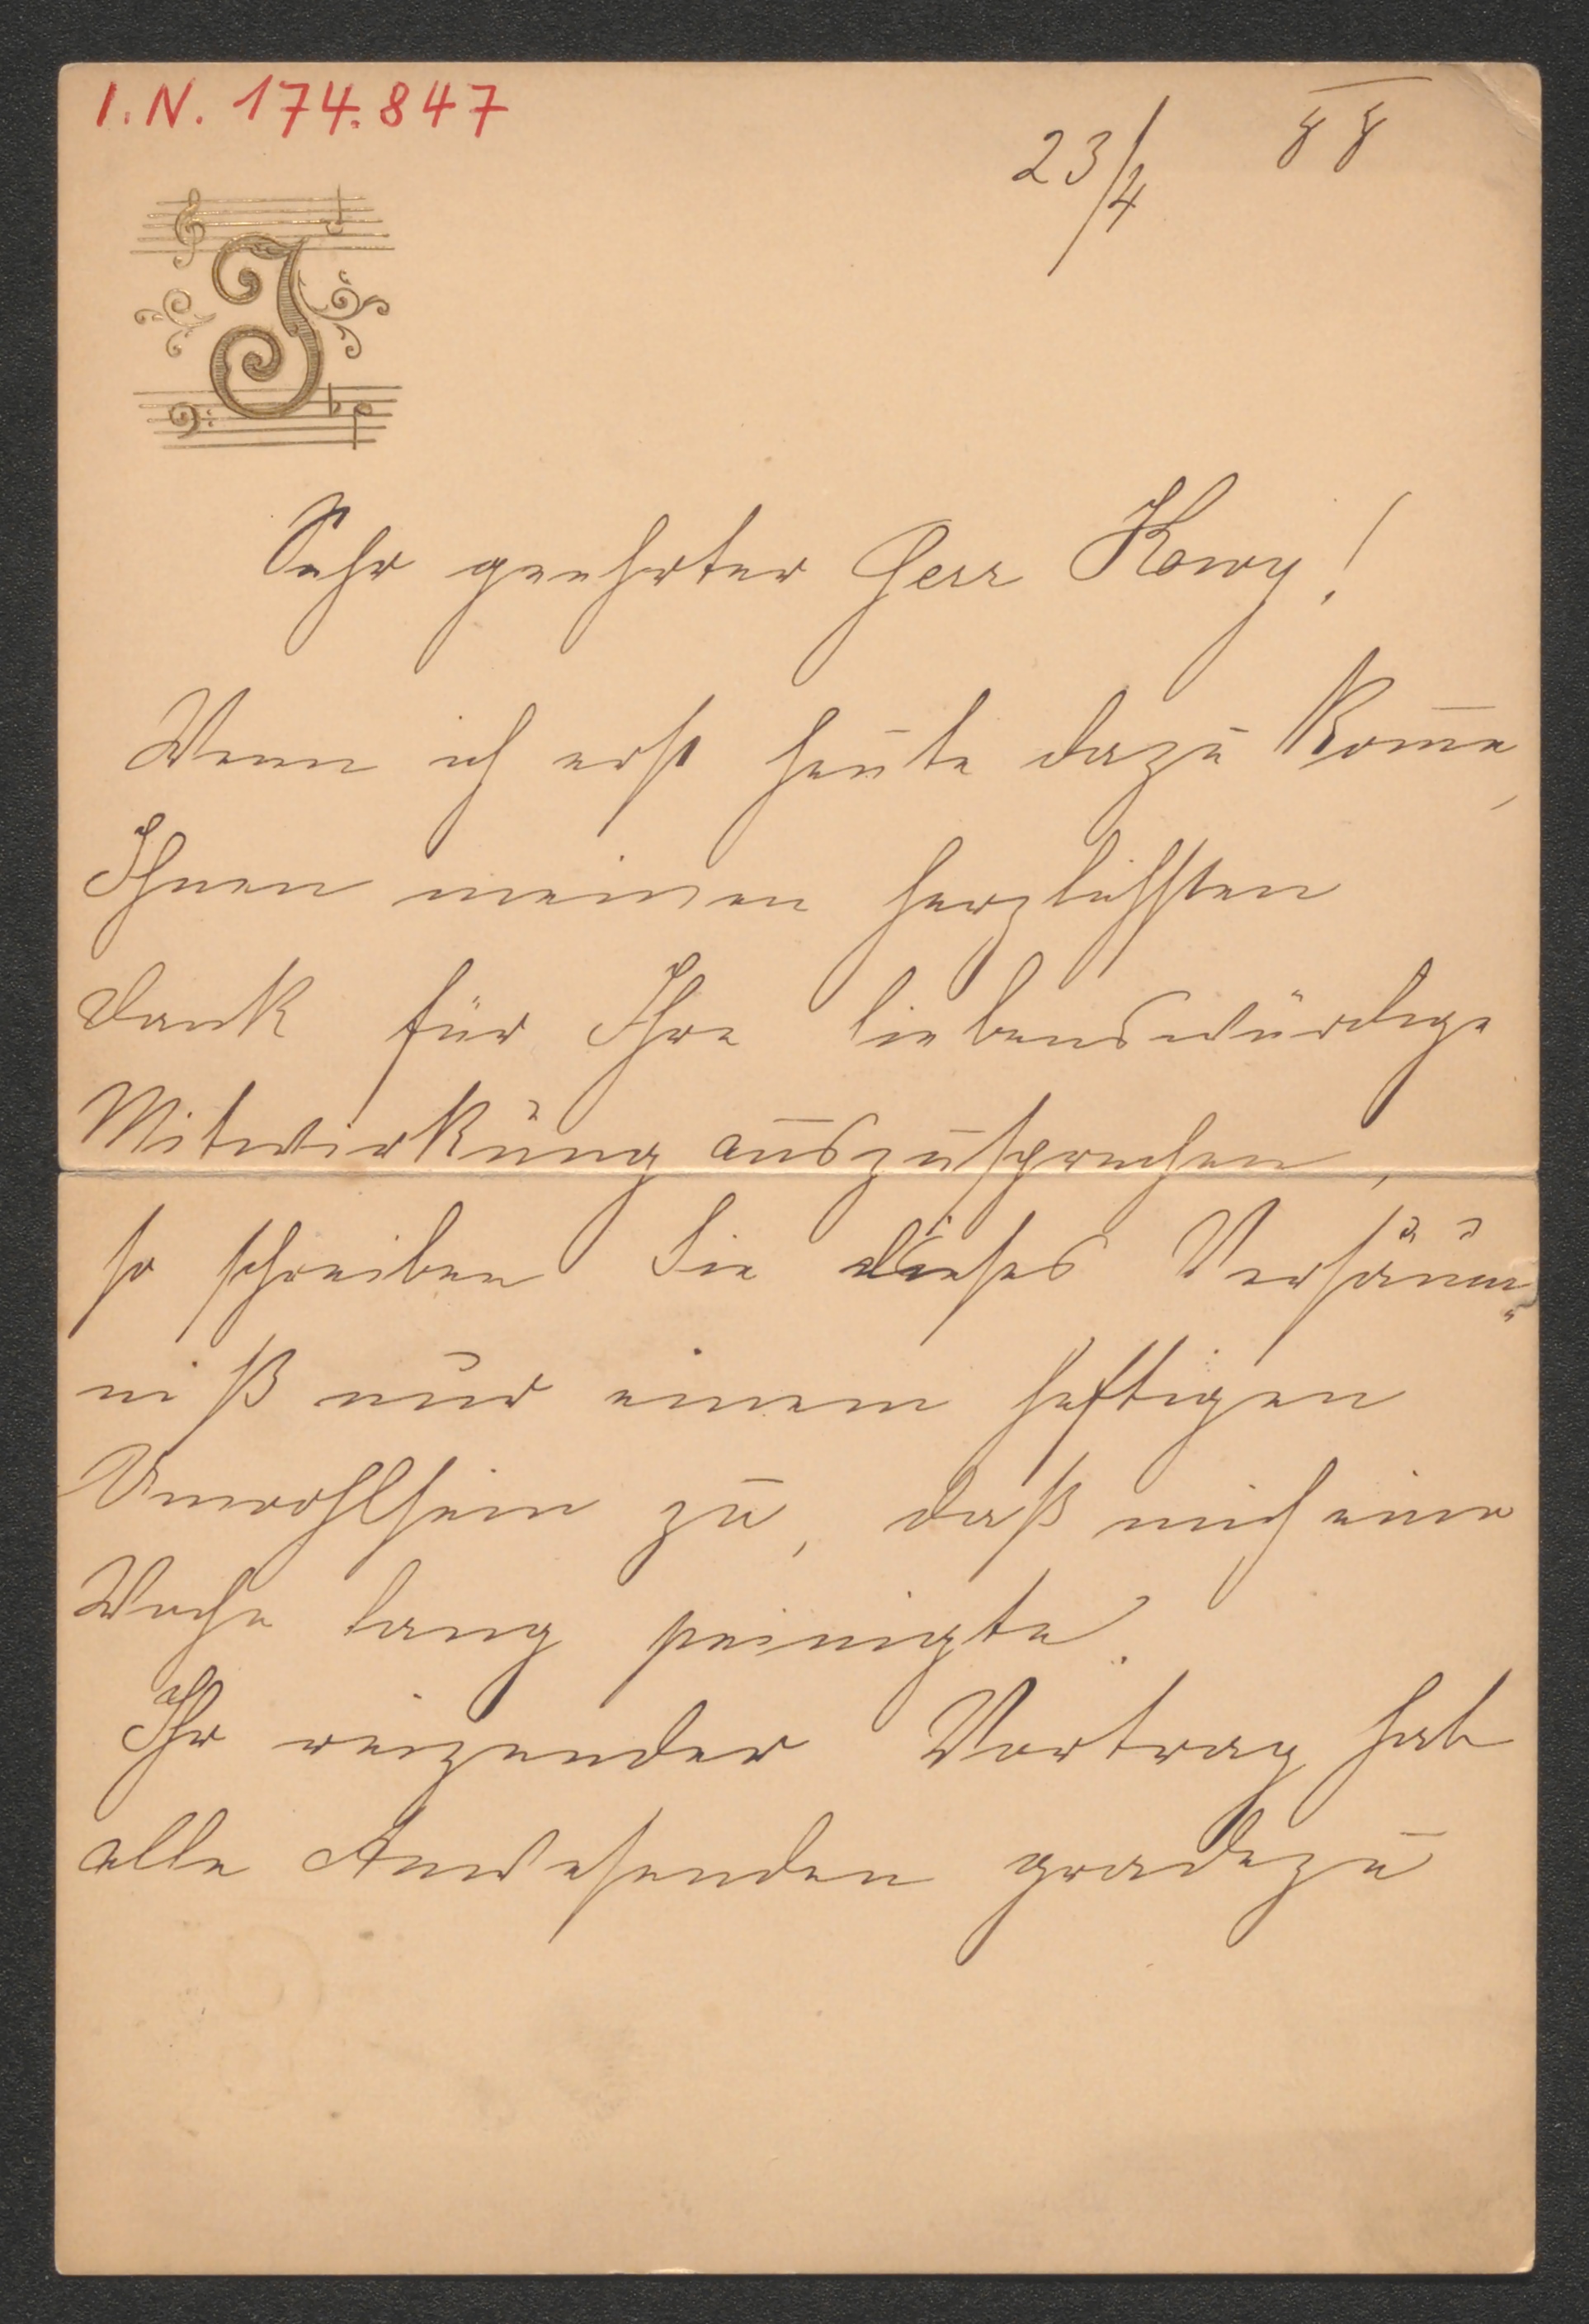 I.N. 174.847
23/4 88
J
Sehr geehrter Herr Kowy!
Wenn ich erst heute dazu kom̄e,
Ihnen meinen herzlichsten
Dank für Ihre liebenswürdige
Mitwirkung auszusprechen,
so schreiben Sie dieses Versäum„
niß nur einem heftigen
Unwohlsein zu, daß mich eine
Woche lang peinigte.
Ihr reizender Vortrag hat
alle Anwesenden gradezu